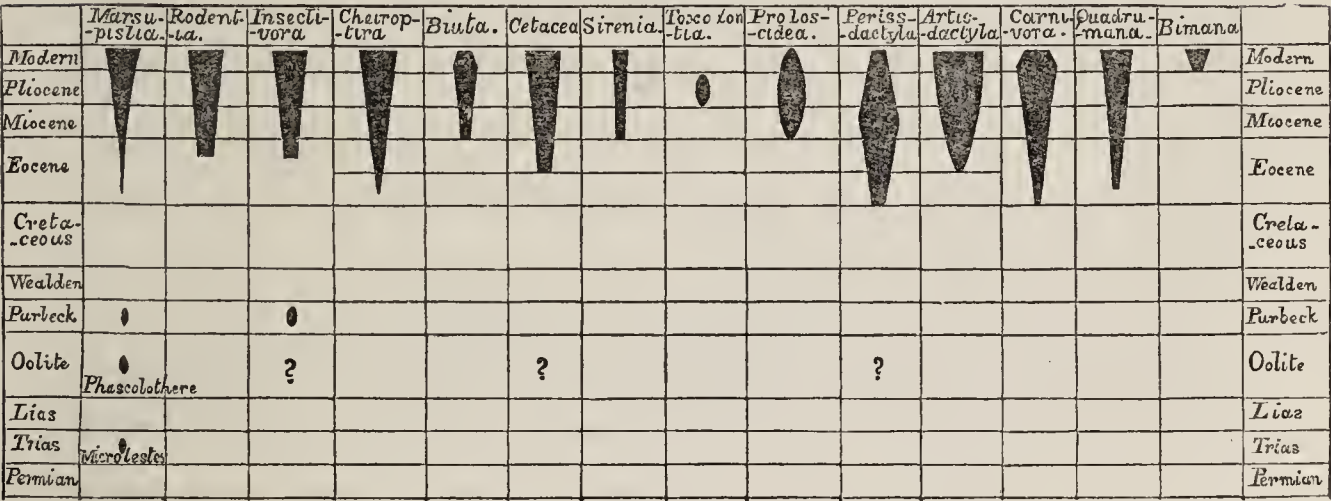 Marsu-
-pislia.
Rodent-
-ia.
Insecti-
-vora
Cheirop-
-tira
Biuta.
Cetacea
Sirenia.
Toxo don
-tia.
Pro los-
-cidea.
Periss-
-dactyla
Artio-
-dactyla
Carni-
-vora.
Quadru-
-mana.
Bimana
Modern
Modern
Pliocene
Pliocene
Miocene
Miocene
Eocene
Eocene
Creta-
-ceous
Creta-
-ceous
Wealden
Wealden
Purbeck
Purbeck
Oolite
Phascolothere
?
?
?
Oolite
Lias
Lias
Trias
Microlestes
Trias
Permian
Permian